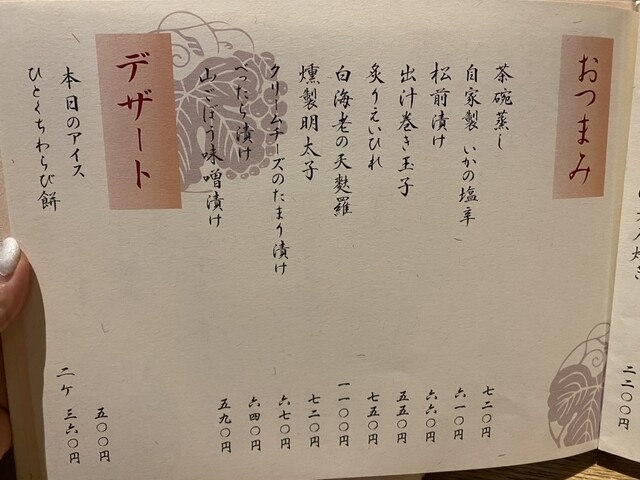 二二〇〇円
おつまみ
茶碗蒸し 七二〇円
自家製 いかの塩辛 六一〇円
松前漬け 六六〇円
出汁巻き玉子 五五〇円
炙りえいひれ 七五〇円
白海老の天麩羅 一一〇〇円
燻製明太子 七二〇円
クリームチーズのたまり漬け 六七〇円
べったら漬け 六四〇円
山ごぼう味噌漬け 五九〇円
デザート
本日のアイス 五〇〇円
ひとくちわらび餅 二ケ 三六〇円